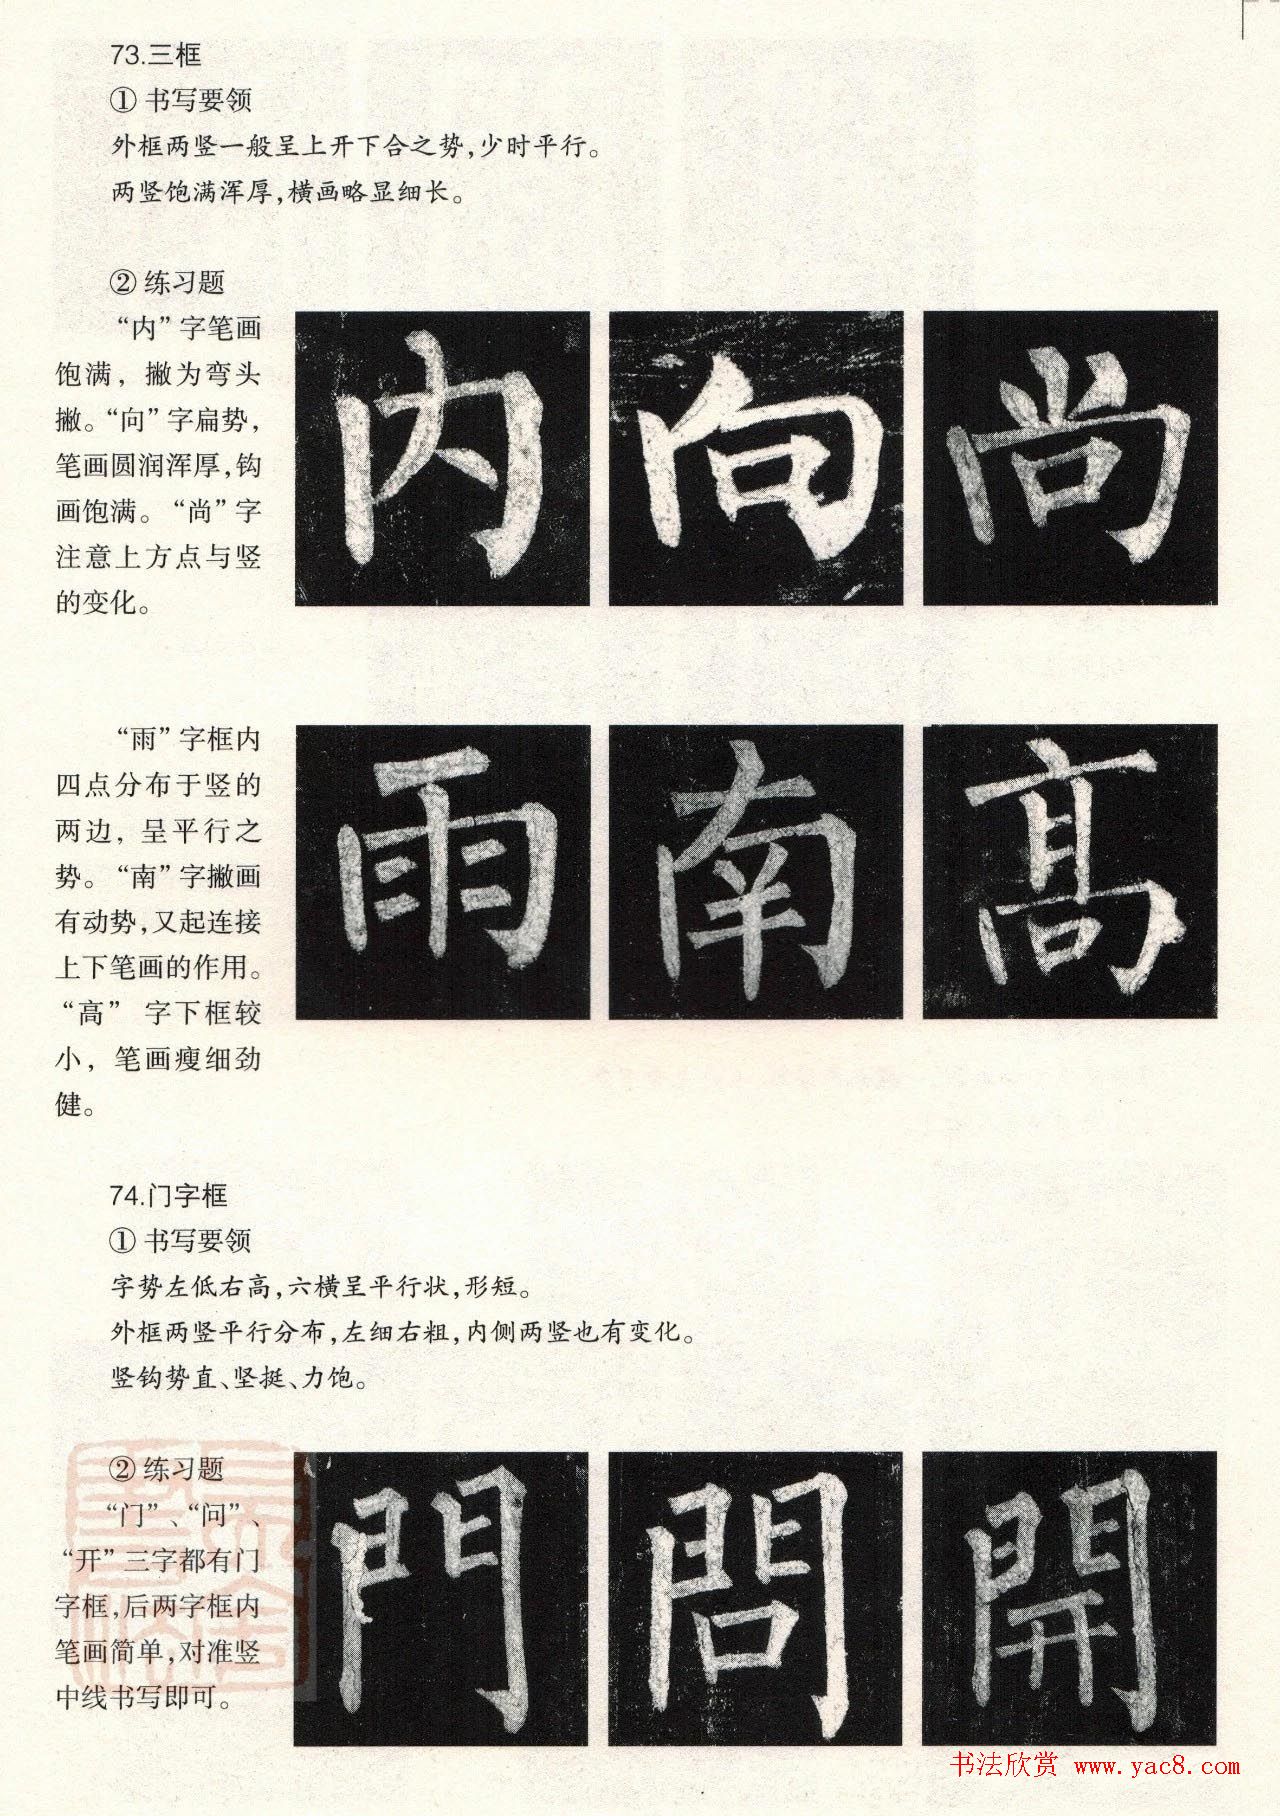 73.三框
① 书写要领
外框两竖一般呈上开下合之势,少时平行。
两竖饱满浑厚,横画略显细长。
② 练习题
“内”字笔画
饱满，撇为弯头
撇。“向”字扁势，
笔画圆润浑厚,钩
画饱满。“尚”字
注意上方点与竖
的变化。
内 向 尚
“雨”字框内
四点分布于竖的
两边，呈平行之
势。“南”字撇画
有动势,又起连接
上下笔画的作用。
“高”字下框较
小，笔画瘦细劲
健。
雨 南 髙
74.门字框
① 书写要领
字势左低右高,六横呈平行状,形短。
外框两竖平行分布,左细右粗,内侧两竖也有变化。
竖钩势直、坚挺、力饱。
② 练习题
“门”、“问”、
“开”三字都有门
字框,后两字框内
笔画简单,对准竖
中线书写即可。
門 問 開
书法欣赏 www.yac8.com